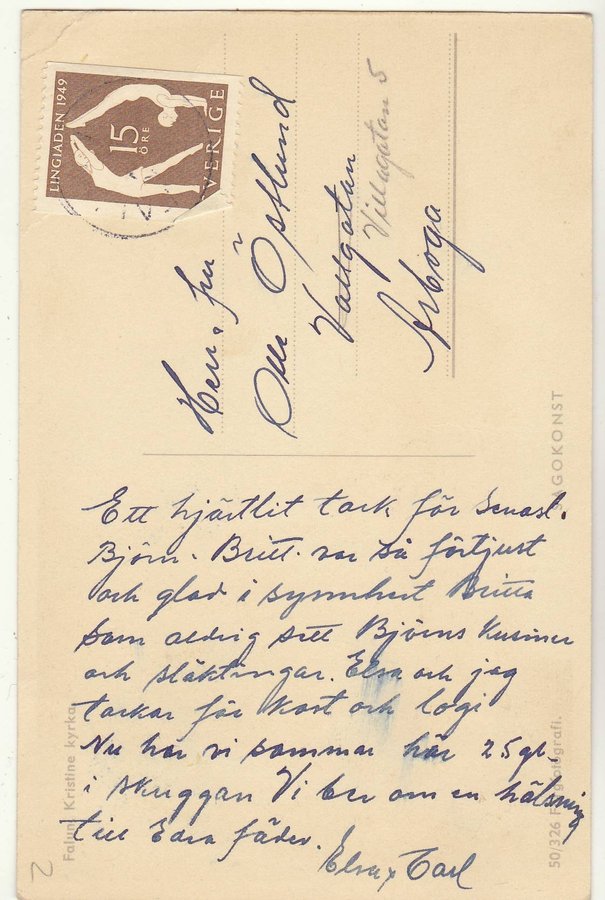 LINGIADEN 1949
15
ÖRE
SVERIGE
Herr o fru
Olle Östlund
Vallgatan
Villagatan 5
Arboga
Ett hjärtlit tack för senast.
Björn - Britt. var så förtjust
och glad i synnhert Britta
som aldrig sett Björns Kusiner
och släktingar. Elsa och jag
tackar för kost och logi
Nu har vi sommar här 25 gr.
i skuggan Vi ber om en hälsning
till Edra fäder.
Elsa x Carl
SAGOKONST
Falun. Kristine kyrka
50/326 Färgfotografi.
2